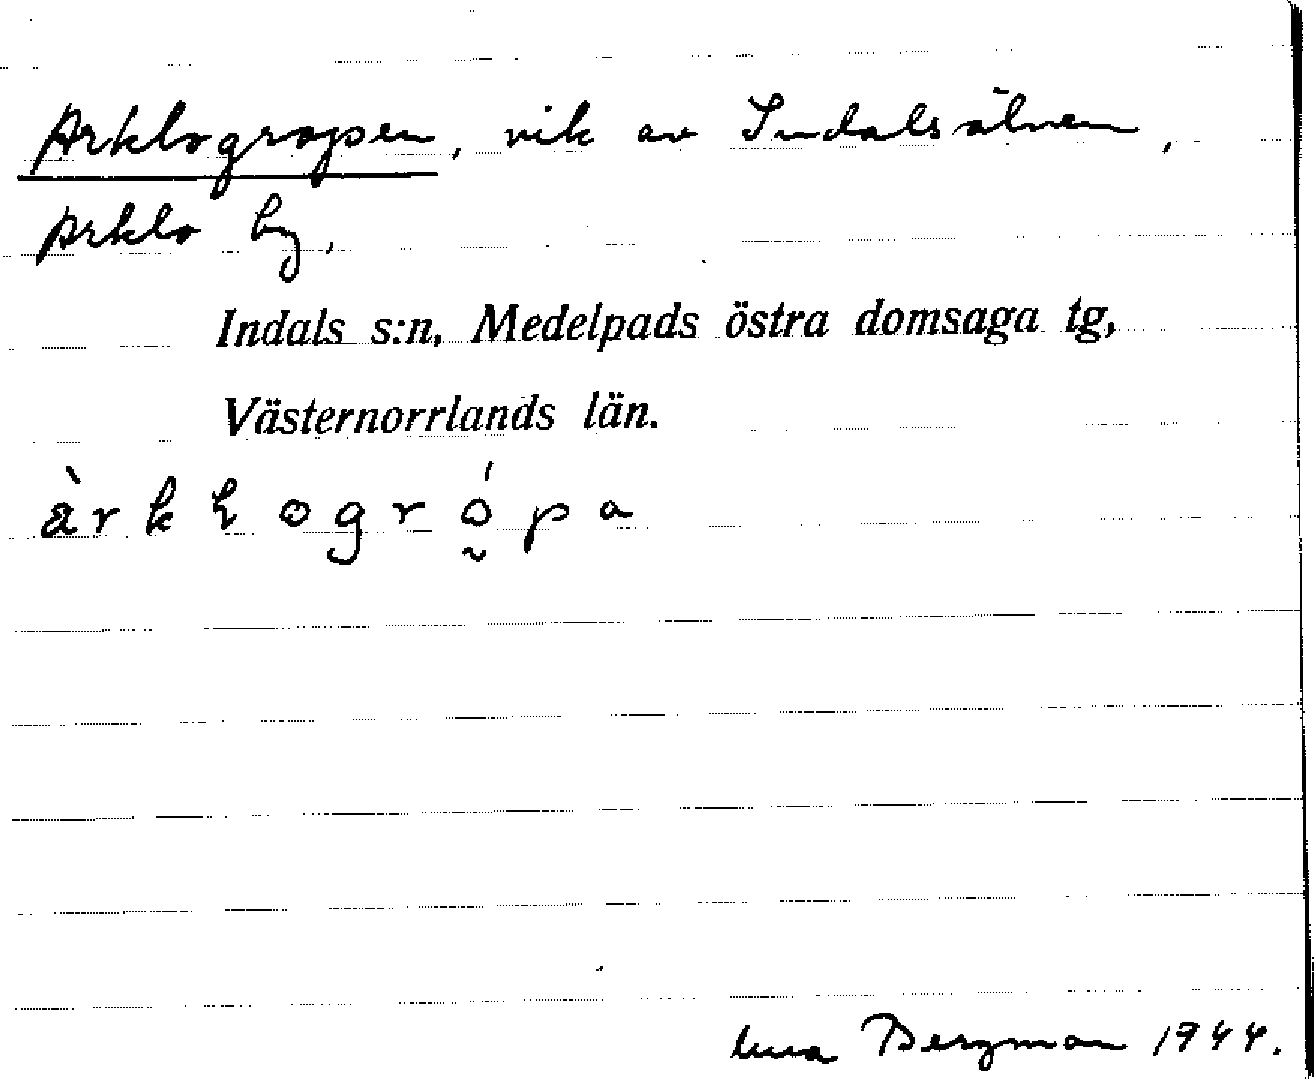 Arklogropen, vik av Indalsälven,
Arklo by,
Indals s:n, Medelpads östra domsaga tg,
Västernorrlands län.
Bergman 1944.